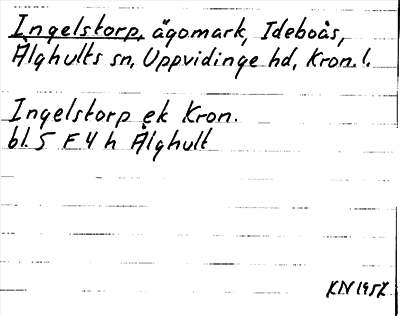 Ingelstorp, ägomark, Ideboås,
Älghults sn, Uppvidinge hd, Kron. l.
Ingelstorp ek Kron.
bl. 5 F 4 h Älghult
KN 1957